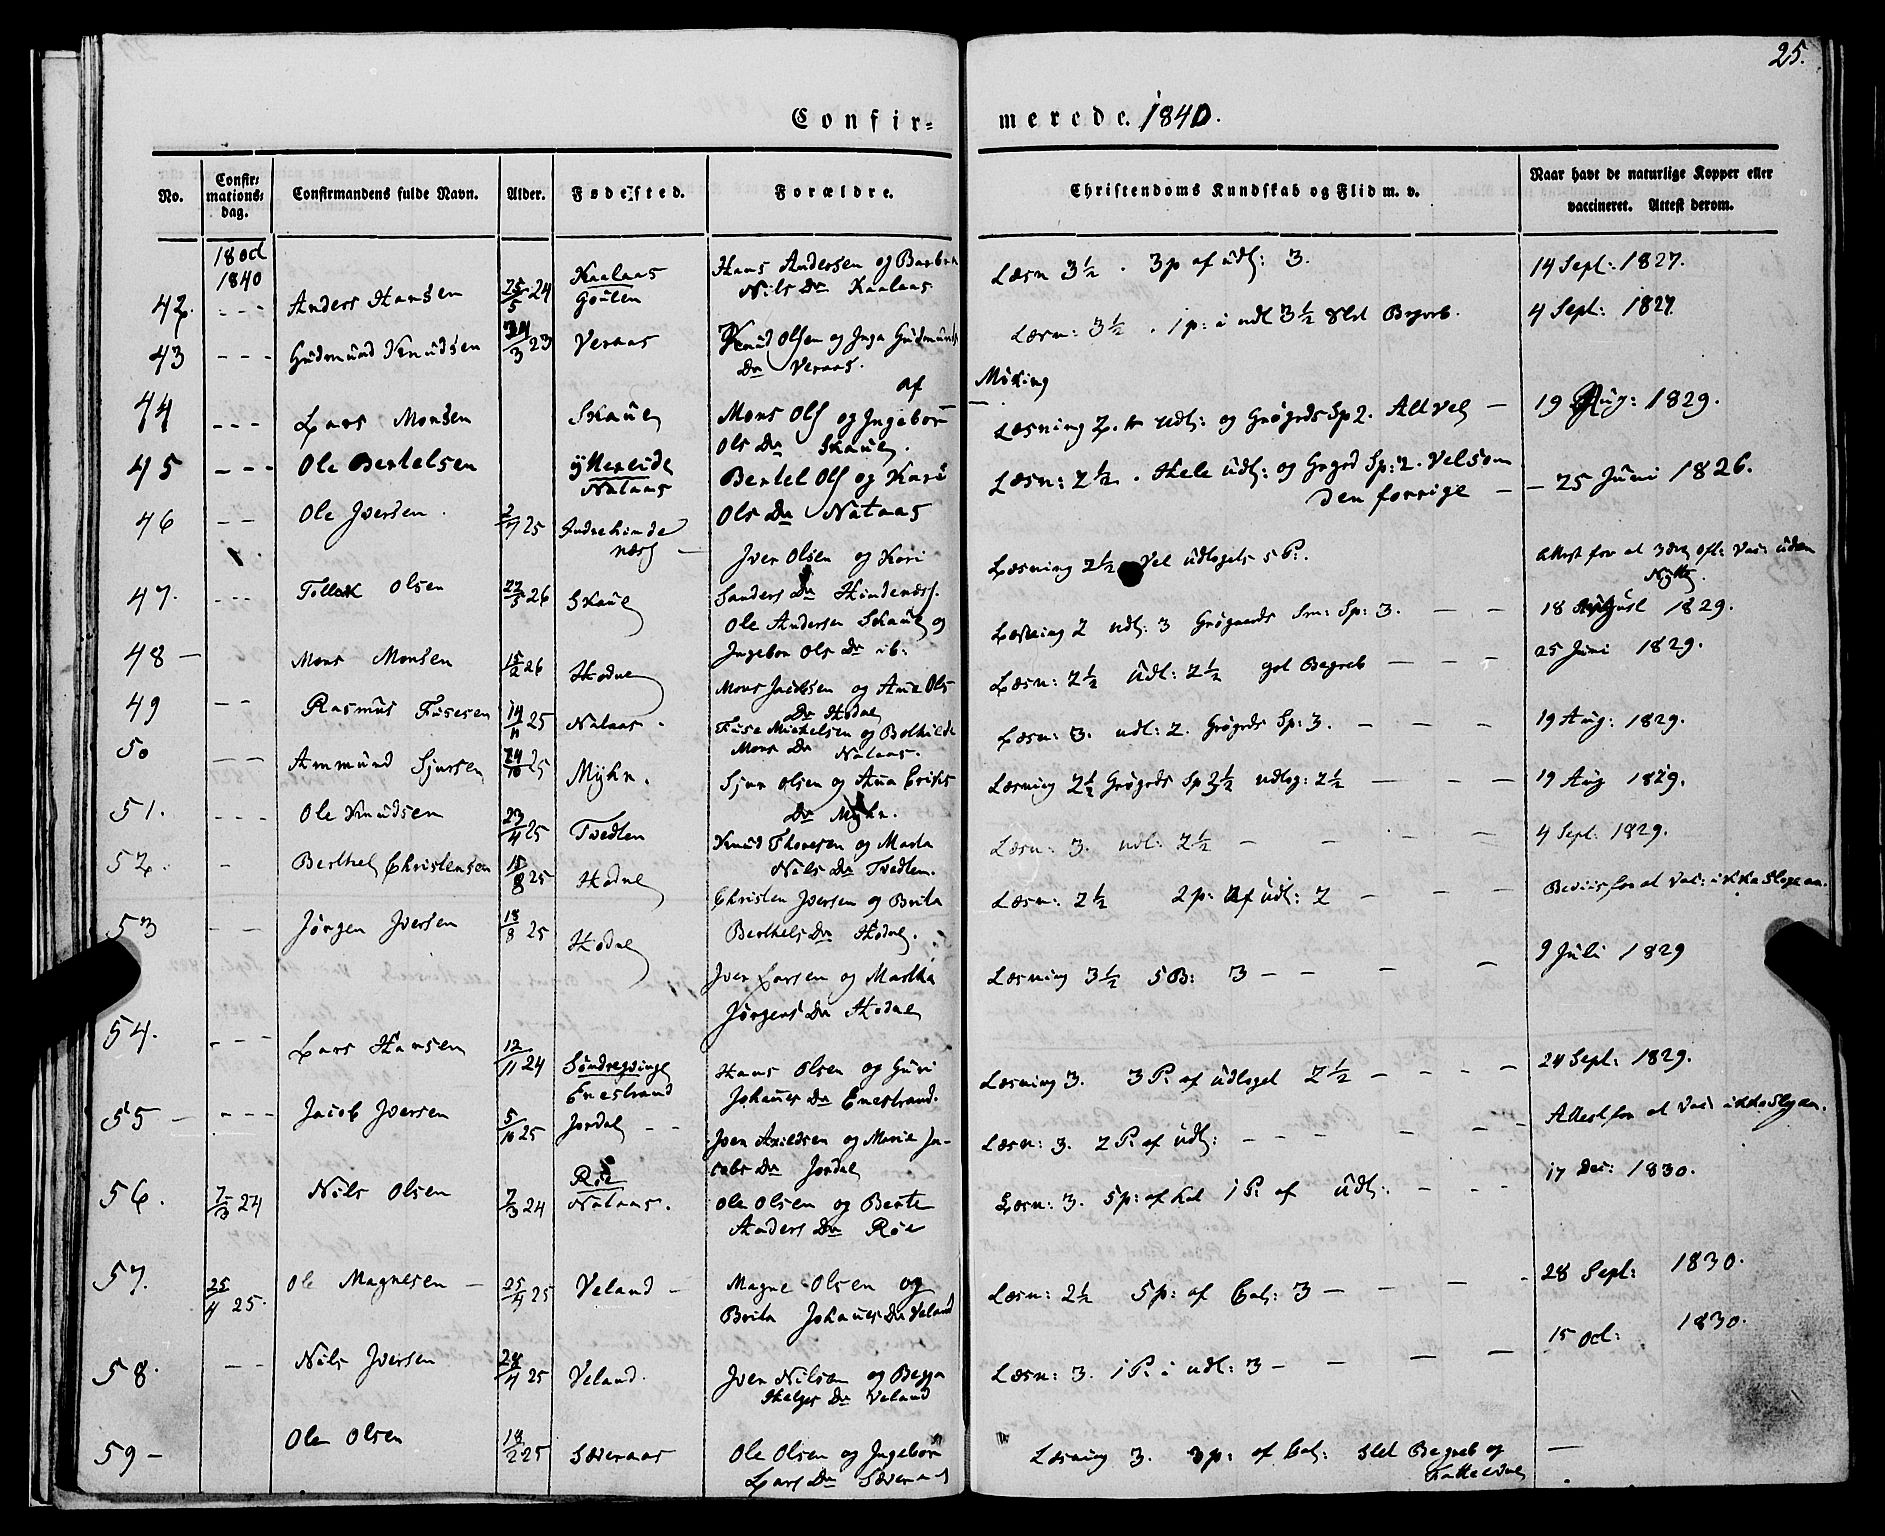 25.
Confir= merede. 1840.
No. Confir= mations= dag. Confirmandens fulde Navn. Alder. Fødested. Forældre. Christendoms Kundskab og Flid m. v. Naar havt de naturlige Kopper eller vaccineret. Attest derom.
18 Oct
1840
42. - - - Anders Hansen 25/5 24 Kaalaas Goulen Hans Andersen og Barbra Nils Dr Kaalaas Læsn 3½ . 3 p af udl: 3. 14 Sept: 1827.
43 - - - Gudmund Knudsen 3 23 Veraas Knud Olsen og Inga Gudmunds Dr Veraas. Læsn: 3½ . 1 p: i udl 3½ Slet Begreb. 4 Sept: 1827.
44 - - - Lars Monsen Skaue Mons Ols og Ingebor Ols Dr Skaue. af Misking Læsning 2. udl: og Grøgrds Sp 2. All Vel — 19 Aug: 1829.
45 - - - Ole Bertelsen Ytlereide Nataas Bertel Ols og Kari Ols Dr Nataas Læsn: 2½ . Hele Udl: og Grgrd Sp: 2. Vel som den forrige — 25 Juni 1826.
46 - - Ole Iversen . 2/7 25 Indrehinde næs — Iver Olsen og Kari Sanders Dr Hindenæs. Læsning 2½ Vel Udlogets 5 P. Attest for at 3de ofl: Vac: uden Nytte.
47. - - - Tollak Olsen 22/5 26 Skaue Ole Andersen Skaue og Ingebor Ols Dr ib: Læsning 2 udl: 3 Grøgaards Sm: Sp: 3. — — 18 August 1829.
48 — Mons Monsen 15/2 26 Hodne Mons Jacobsen og Ane Ols Dr Hodne Læsn: 2½ Udl: 2½ got Begreb — — — 25 Juni 1829.
49 - - Rasmus Fusesen 14/11 25 Nataas - Fuse Mickelsen og Bothilde Mons Dr Nataas. Læsn: 3. udl: 2. Grøgrds Sp: 3. — — — 19 Aug: 1829.
50 - - Ammund Sjursen 24/10 25 Myhr. Sjur Olsen og Ana Eriks Dr Myhr. Læsning 2½ Grøgrds Sp 2½ udlog: 2½ — — — 19 Aug 1829.
51. - - - Ole Knudsen 23/4 25 Tvedten Knud Thoresen og Marta Nils Dr Tvedten. Læsn: 3. udl: 2½ — — — — 4 Sept: 1829.
52. - Berthel Christensen 15/8 25 Hodne Christen Iversen og Brita Berthels Dr Hodne. Læsn: 2½ 2 p: af udl: 2 — — — Beviis for at Vac: ikke slog an.
53 - - Jørgen Iversen 18/8 25 Hodne Iver Larsen og Martha Jørgens Dr Hodne Læsning 3½ 5 B: 3 — — — — 9 Juli 1829
54. - - - Lars Hansen 12/11 24 Søndregdinge Enestrand Hans Olsen og Guri Johannes Dr Enestrand. Læsning 3. 3 P: af Udloget 2½ — — - - 24 Sept: 1829.
55 — - - - Jacob Iversen 5/10 25 Jordal - - Iver Arildsen og Marie Ja- cobs Dr Jordal Læsn: 3. 2 P: af Udl: — — — — — Attest for at Vac: ikke slog an.
56. 7/3 24 Nils Olsen 7/3 24 Røe Nataas. Ole Olsen og Berte Anders Dr Røe Læsn: 3. 5 p: af Kat 1 P: af Udl: - - - 17 Dec: 1830.
57. 25/4 25. Ole Magnesen — 25/4 25 Veland — Magne Olsen og Brita Johannes Dr Veland Læsn: 2½ 5 p: af Cat: 3 — — — - 28 Sept: 1830.
58. - - Nils Iversen 28/4 25 Veland. Iver Nilsen og Begga Helges Dr Veland Læsn: 3. 1 P: i udl: 3 — — — — 15 Oct: 1830.
59 — Ole Olsen 18/2 25 Sæveraas Ole Olsen og Ingebor Lars Dr Sæveraas Læsning 3. 3 p: af Cat: Slet Begreb og —